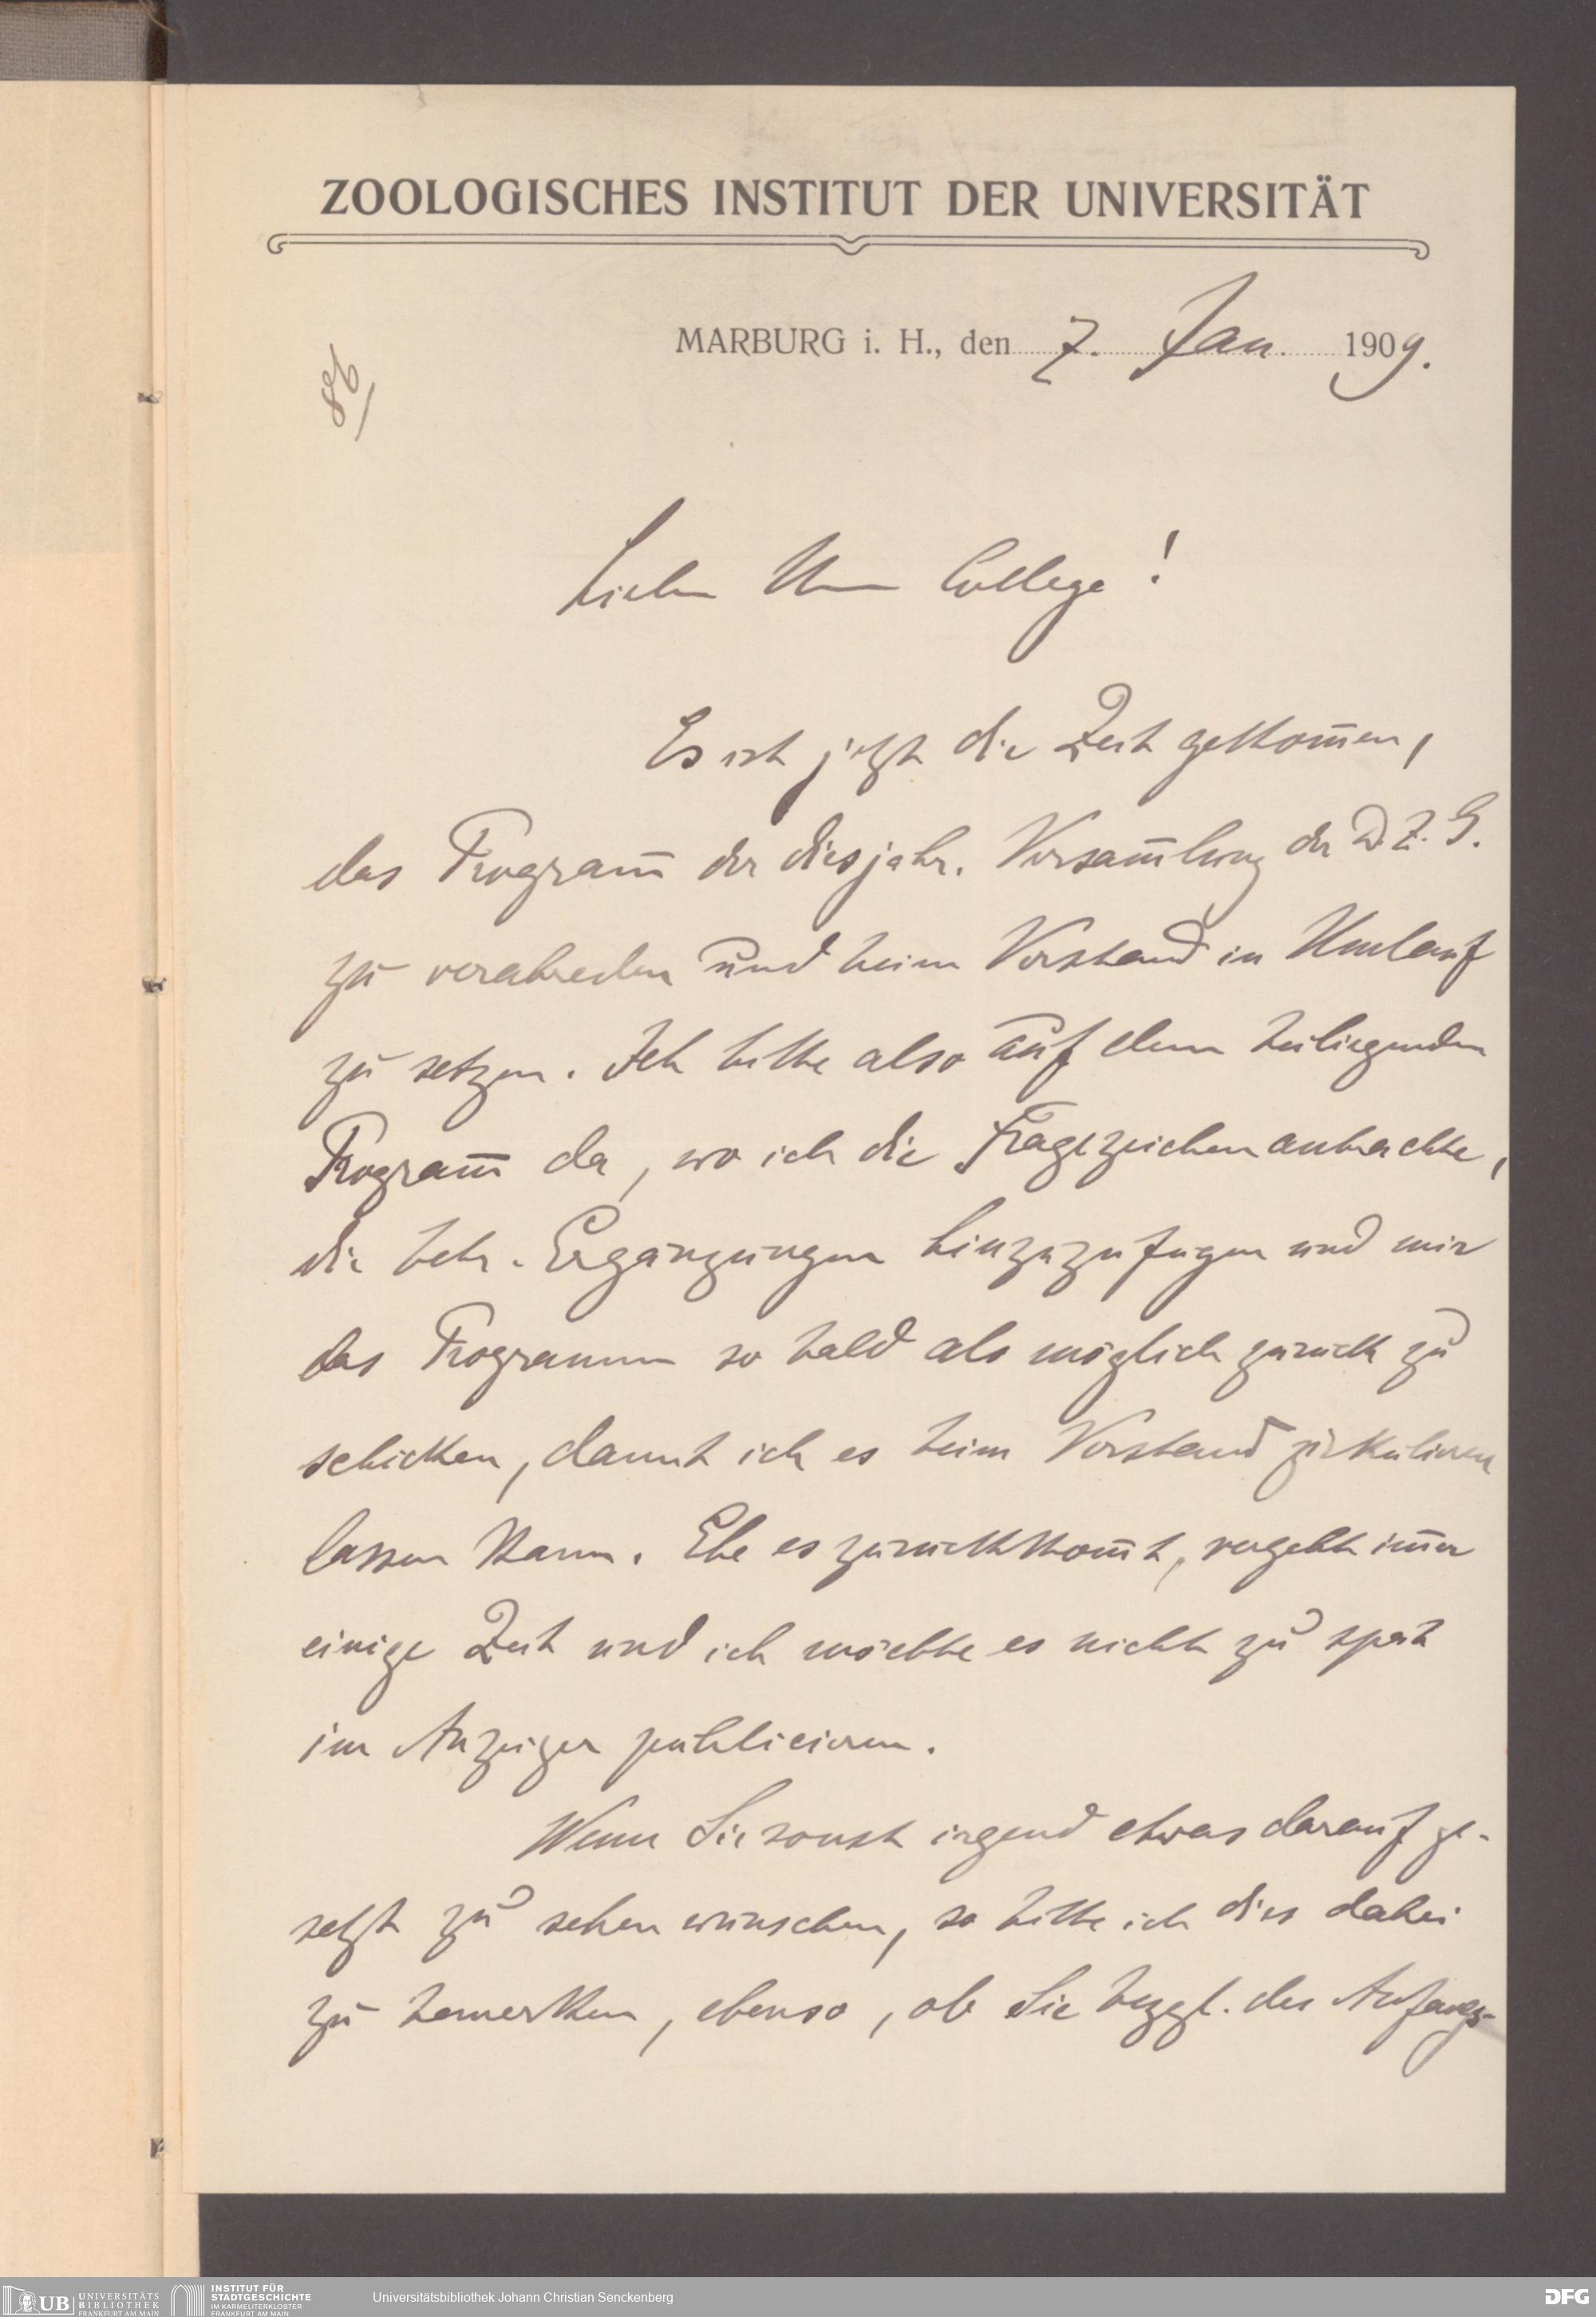 ZOOLOGISCHES INSTITUT DER UNIVERSITÄT
MARBURG i. H., den 7. Jan. 1909.
86
Lieber Herr College!
Es ist jetzt die Zeit gekom̅en,
das Program̅ der diesjähr. Versam̅lung der D. Z. G.
zu verabreden und beim Vorstand in Umlauf
zu setzen. Ich bitte also auf dem beiliegenden
Program̅ da, wo ich die Fragezeichen anbrachte,
die betr. Ergänzungen hinzuzufügen und mir
das Programm so bald als möglich zurück zu
schicken, damit ich es beim Vorstand zirkuliren
lassen kann. Ehe es zurückkom̅t, vergeht im̅er
einige Zeit und ich möchte es nicht zu spät
im Anzeiger publiciren.
Wenn Sie sonst irgend etwas darauf ge-
setzt zu sehen wünschen, so bitte ich dies dabei
zu bemerken, ebenso, ob Sie bezgl. der Anfangs-
UB UNIVERSITÄTS
BIBLIOTHEK
FRANKFURT AM MAIN
INSTITUT FÜR
STADTGESCHICHTE
IM KARMELITERKLOSTER
FRANKFURT AM MAIN
Universitätsbibliothek Johann Christian Senckenberg
DFG